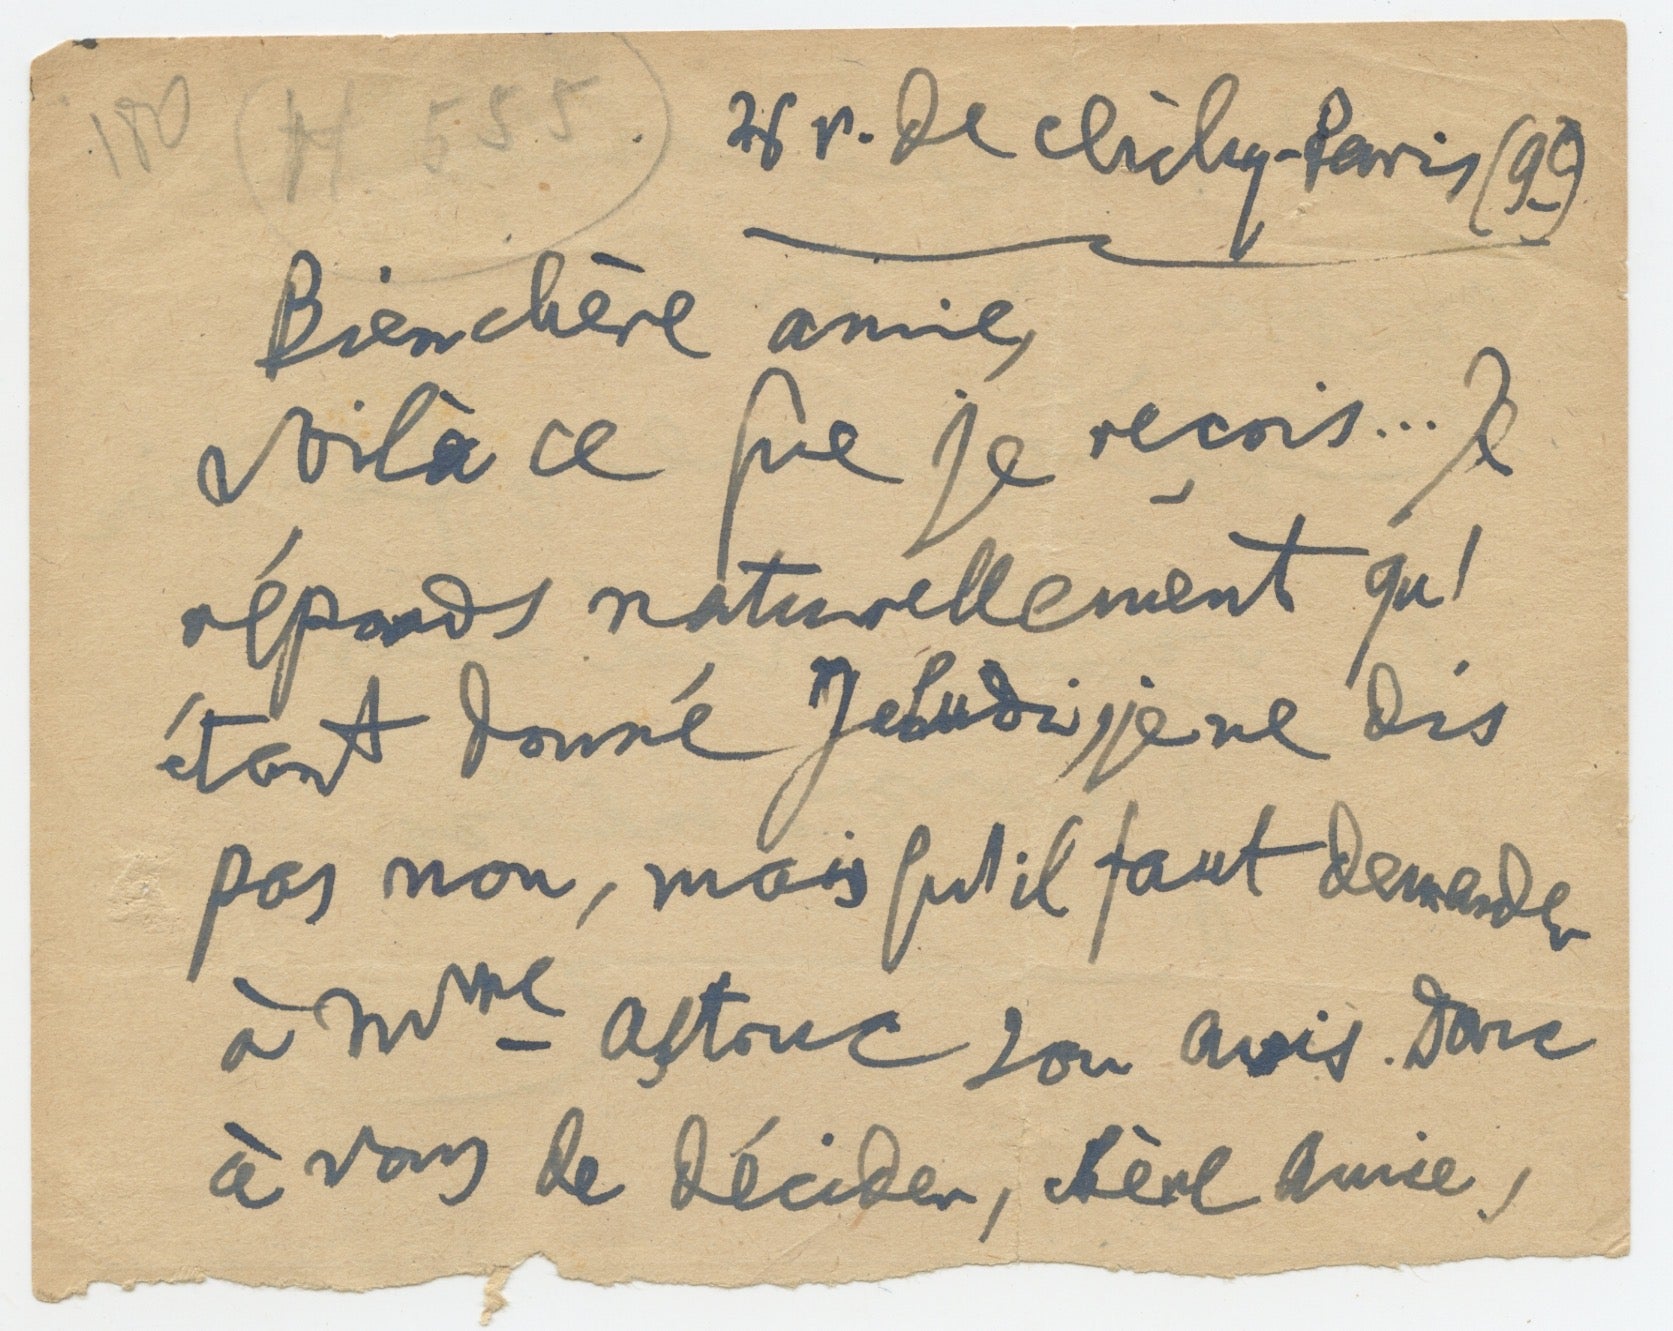 180 (H 555)
26 r. de Clichy - Paris (9e)
Bien chère amie,
Voilà ce que je reçois... Je
réponds naturellement qu'
étant donné Jehudi, je ne dis
pas non, mais qu'il faut demander
à Mme Astruc son avis. Donc
à vous de décider, chère Amie,